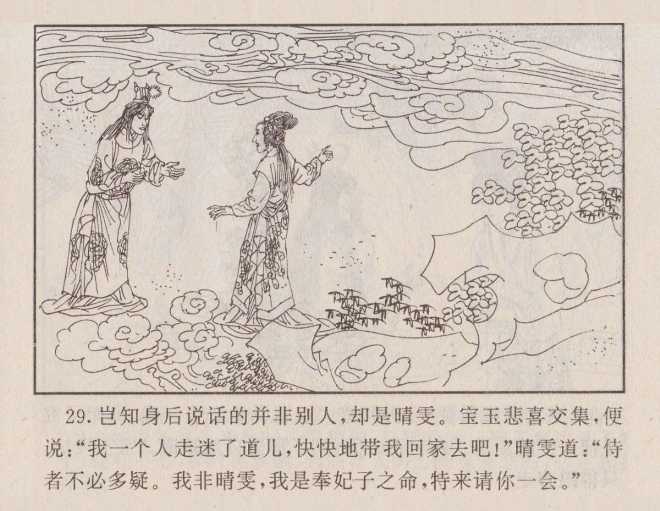 29. 岂知身后说话的并非别人,却是晴雯。宝玉悲喜交集,便
说:“我一个人走迷了道儿,快快地带我回家去吧!”晴雯道:“侍
者不必多疑。我非晴雯,我是奉妃子之命,特来请你一会。”